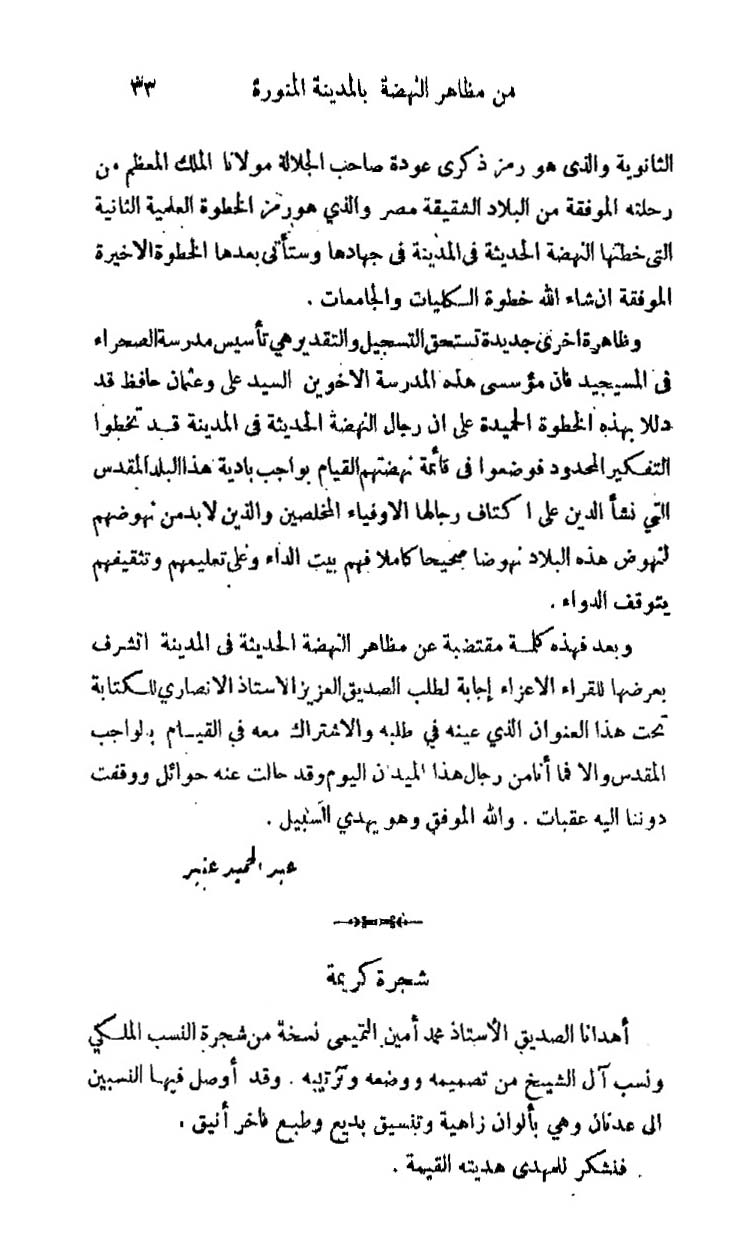 من مظاهر النهضة بالمدينة المنورة ٣٣
الثانوية والذى هو رمز ذكرى عودة صاحب الجلالة مولانا الملك المعظم من
رحلته الموفقة من البلاد الشقيقة مصر والذي هو رمز الخطوة العلمية الثانية
التى خطتها النهضة الحديثة فى المدينة فى جهادها وستأتى بعدها الخطوة الاخيرة
الموفقة ان شاء الله خطوة الكليات والجامعات .
وظاهرة اخرى جديدة تستحق التسجيل والتقدير هي تأسيس مدرسة الصحراء
فى المسيجيد فان مؤسسى هذه المدرسة الاخوين السيد على وعثمان حافظ قد
دللا بهذه الخطوة الحميدة على ان رجال النهضة الحديثة فى المدينة قد تخطوا
التفكير المحدود فوضعوا فى قائمة نهضتهم القيام بواجب بادية هذا البلد المقدس
التي نشأ الدين على اكتاف رجالها الاوفياء المخلصين والذين لا بد من نهوضهم
لنهوض هذه البلاد نهوضا صحيحا كاملا فهم بيت الداء وعلى تعليمهم وتثقيفهم
يتوقف الدواء .
وبعد فهذه كلمة مقتضبة عن مظاهر النهضة الحديثة فى المدينة اتشرف
بعرضها للقراء الاعزاء إجابة لطلب الصديق العزيز الاستاذ الانصاري للكتابة
تحت هذا العنوان الذي عينه في طلبه والاشتراك معه في القيام بالواجب
المقدس والا فما أنا من رجال هذا الميدان اليوم وقد حالت عنه حوائل ووقفت
دوننا اليه عقبات . والله الموفق وهو يهدي السبيل .
عبد الحميد عنبر
شجرة كريمة
أهدانا الصديق الأستاذ محمد أمين التميمى نسخة من شجرة النسب الملكي
ونسب آل الشيخ من تصميمه ووضعه وترتيبه . وقد أوصل فيها النسبين
الى عدنان وهي بألوان زاهية وتنسيق بديع وطبع فاخر أنيق .
فنشكر للمهدى هديته القيمة .